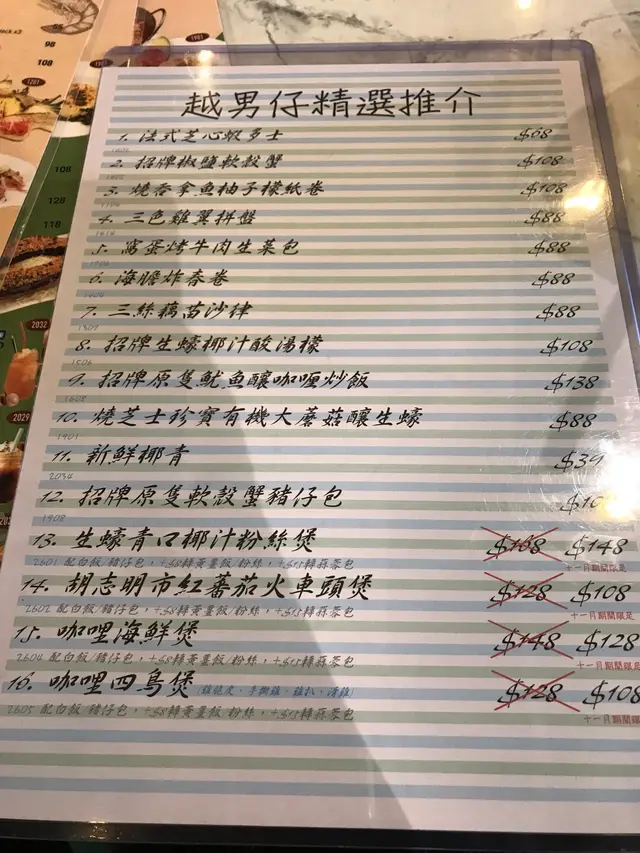 98
108
128
118
2032
2029
越男仔精選推介
1. 法式芝心蝦多士 $68
2. 招牌椒鹽軟殼蟹 $108
3. 燒吞拿魚柚子檬紙卷 $108
4. 三色雞翼拼盤 $88
5. 窩蛋烤牛肉生菜包 $88
6. 海膽炸春卷 $88
7. 三絲藕苗沙律 $88
8. 招牌生蠔椰汁酸湯檬 $108
1506
9. 招牌原隻魷魚釀咖喱炒飯 $138
10. 燒芝士珍寶有機大蘑菇釀生蠔 $88
1901
11. 新鮮椰青 $39
2034
12. 招牌原隻軟殼蟹豬仔包
1908
13. 生蠔青口椰汁粉絲煲 $168 $148
2601 配白飯/豬仔包，+$8轉黃薑飯/粉絲，+$15轉蒜蓉包 十一月期間限定
14. 胡志明市紅蕃茄火車頭煲 $128 $108
2602 配白飯/豬仔包，+$8轉黃薑飯/粉絲，+$15轉蒜蓉包 十一月期間限定
15. 咖哩海鮮煲 $148 $128
2604 配白飯/豬仔包，+$8轉黃薑飯/粉絲，+$15轉蒜蓉包 十一月期間限定
16. 咖哩四鳥煲 $128 $108
2605 配白飯/豬仔包，+$8轉黃薑飯/粉絲，+$15轉蒜蓉包 十一月期間限